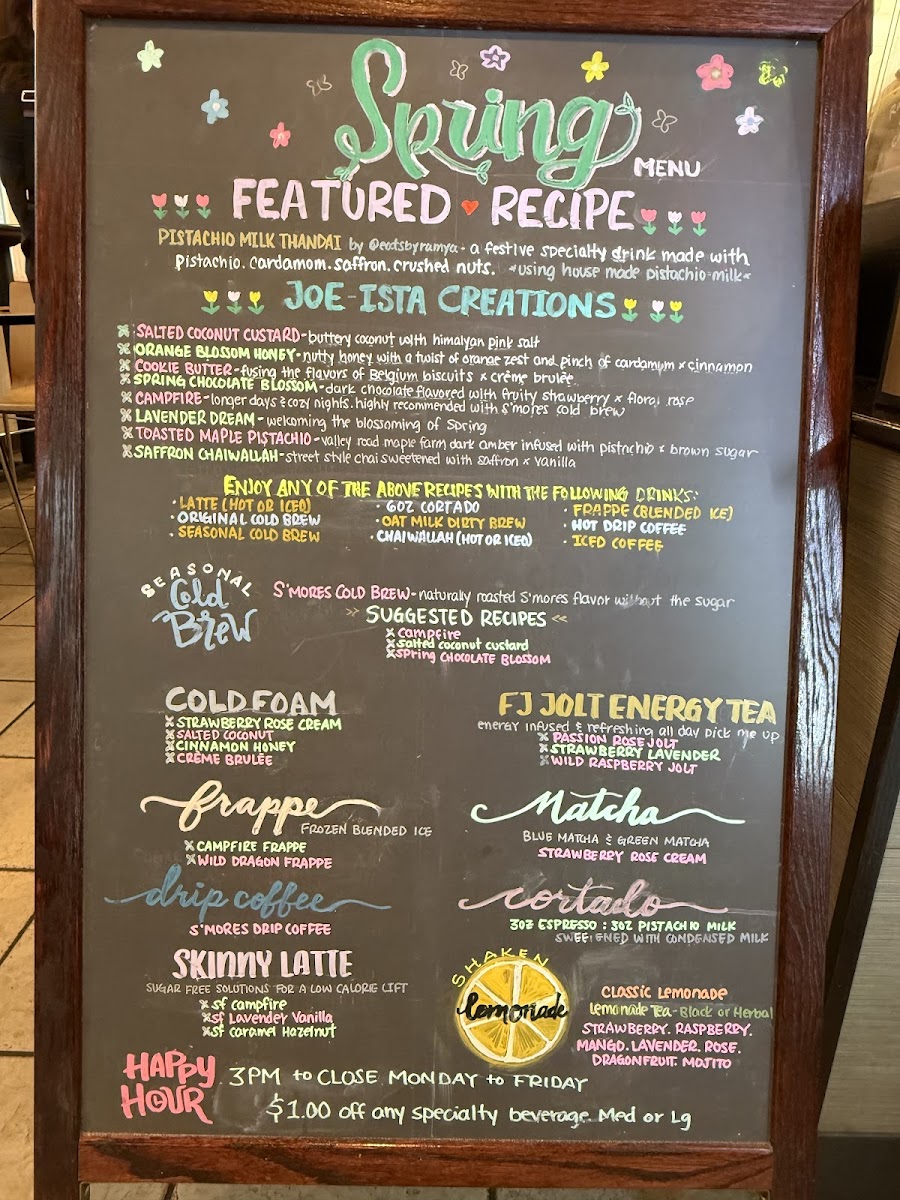 Spring
MENU
FEATURED RECIPE
PISTACHIO MILK THANDAI by @eatsbyramya - a festive specialty drink made with
pistachio. cardamom. saffron. crushed nuts. *using house made pistachio milk*
JOE-ISTA CREATIONS
SALTED COCONUT CUSTARD - buttery coconut with himalyan pink salt
ORANGE BLOSSOM HONEY - nutty honey with a twist of orange zest and pinch of cardamum x cinnamon
COOKIE BUTTER - fusing the flavors of Belgium biscuits x crème brulée
SPRING CHOCOLATE BLOSSOM - dark chocolate flavored with fruity strawberry x floral rose
CAMPFIRE - longer days & cozy nights. highly recommended with s'mores cold brew
LAVENDER DREAM - welcoming the blossoming of Spring
TOASTED MAPLE PISTACHIO - valley road maple farm dark amber infused with pistachio x brown sugar
SAFFRON CHAIWALLAH - street style chai sweetened with saffron x vanilla
ENJOY ANY OF THE ABOVE RECIPES WITH THE FOLLOWING DRINKS:
· LATTE (HOT OR ICED) · 6OZ CORTADO · FRAPPE (BLENDED ICE)
· ORIGINAL COLD BREW · OAT MILK DIRTY BREW · HOT DRIP COFFEE
· SEASONAL COLD BREW · CHAIWALLAH (HOT OR ICED) · ICED COFFEE
SEASONAL
Cold
Brew
S'MORES COLD BREW - naturally roasted S'mores flavor without the sugar
>> SUGGESTED RECIPES <<
x campfire
x salted coconut custard
x spring CHOCOLATE BLOSSOM
COLD FOAM
x STRAWBERRY ROSE CREAM
x SALTED COCONUT
x CINNAMON HONEY
x CRÈME BRULÉE
FJ JOLT ENERGY TEA
energy infused & refreshing all day pick me up
x PASSION ROSE JOLT
x STRAWBERRY LAVENDER
x WILD RASPBERRY JOLT
frappe
FROZEN BLENDED ICE
x CAMPFIRE FRAPPE
x WILD DRAGON FRAPPE
Matcha
BLUE MATCHA & GREEN MATCHA
STRAWBERRY ROSE CREAM
drip coffee
S'MORES DRIP COFFEE
cortado
3OZ ESPRESSO : 3OZ PISTACHIO MILK
SWEETENED WITH CONDENSED MILK
SKINNY LATTE
SUGAR FREE SOLUTIONS FOR A LOW CALORIE LIFT
x sf campfire
x sf Lavender Vanilla
x sf caramel Hazelnut
SHAKEN
lemonade
CLASSIC LEMONADE
Lemonade Tea - Black or Herbal
STRAWBERRY. RASPBERRY.
MANGO. LAVENDER. ROSE.
DRAGONFRUIT. MOJITO
HAPPY
HOUR
3PM to CLOSE MONDAY to FRIDAY
$1.00 off any specialty beverage Med or Lg